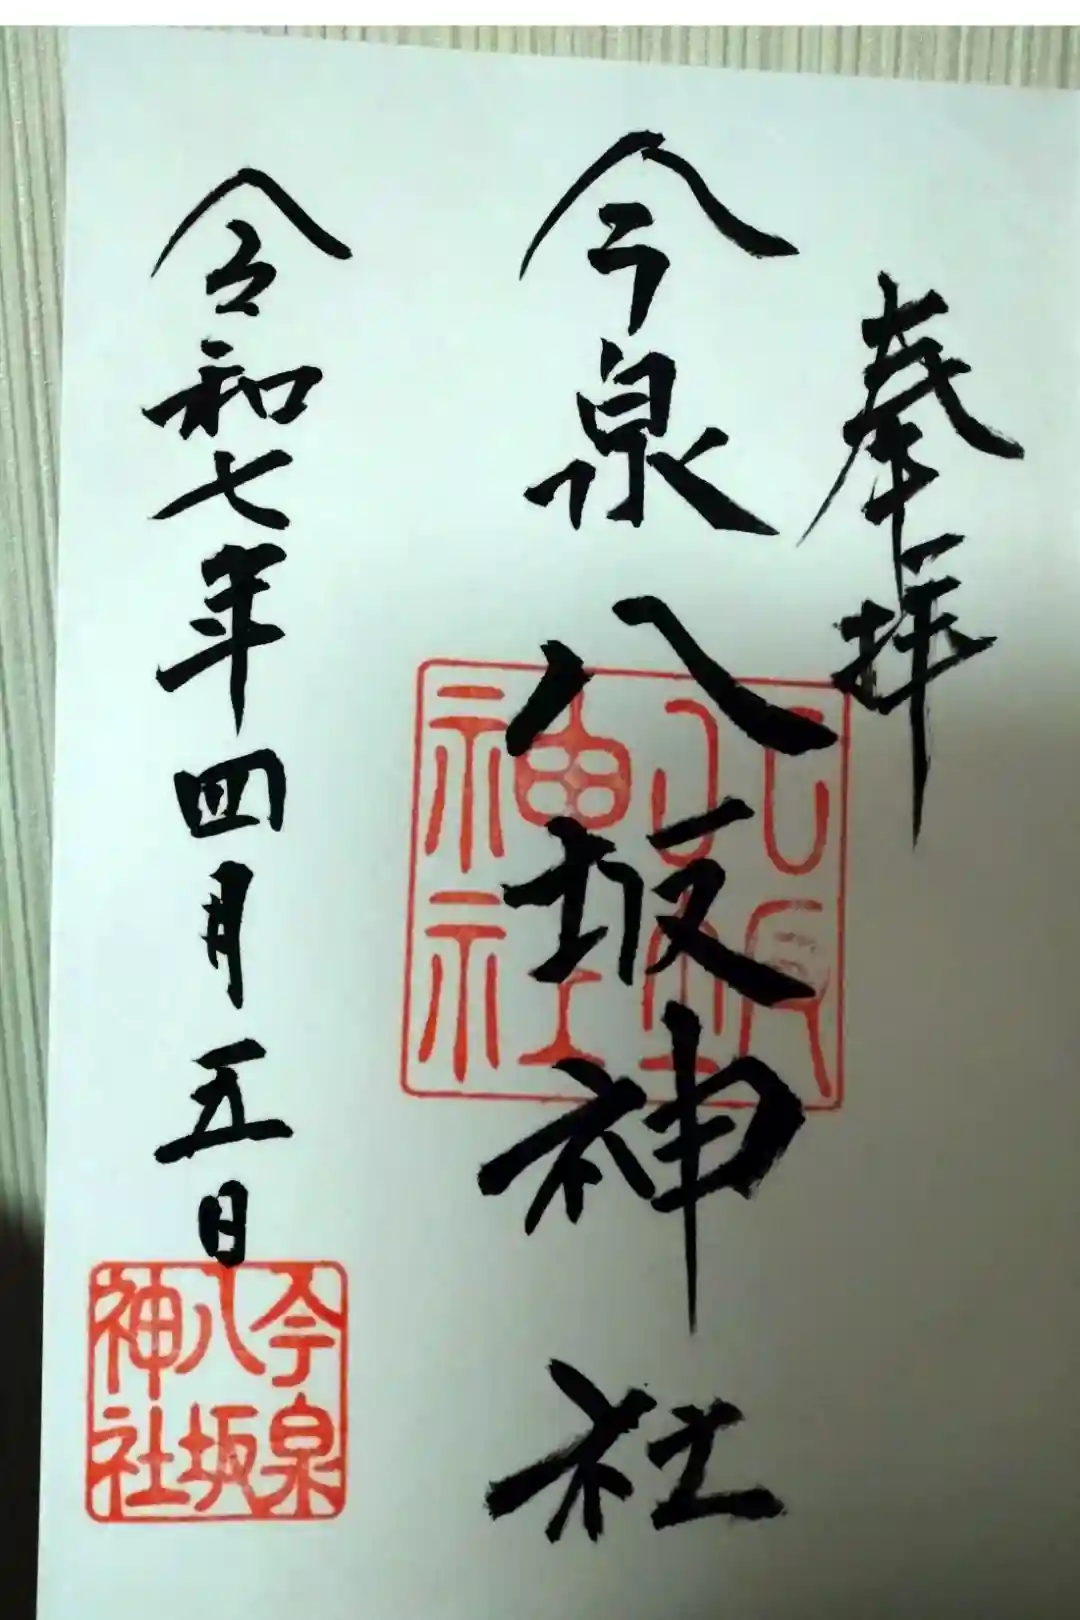 奉拝
今泉八坂神社
八坂神社
令和七年四月五日
今泉八坂神社